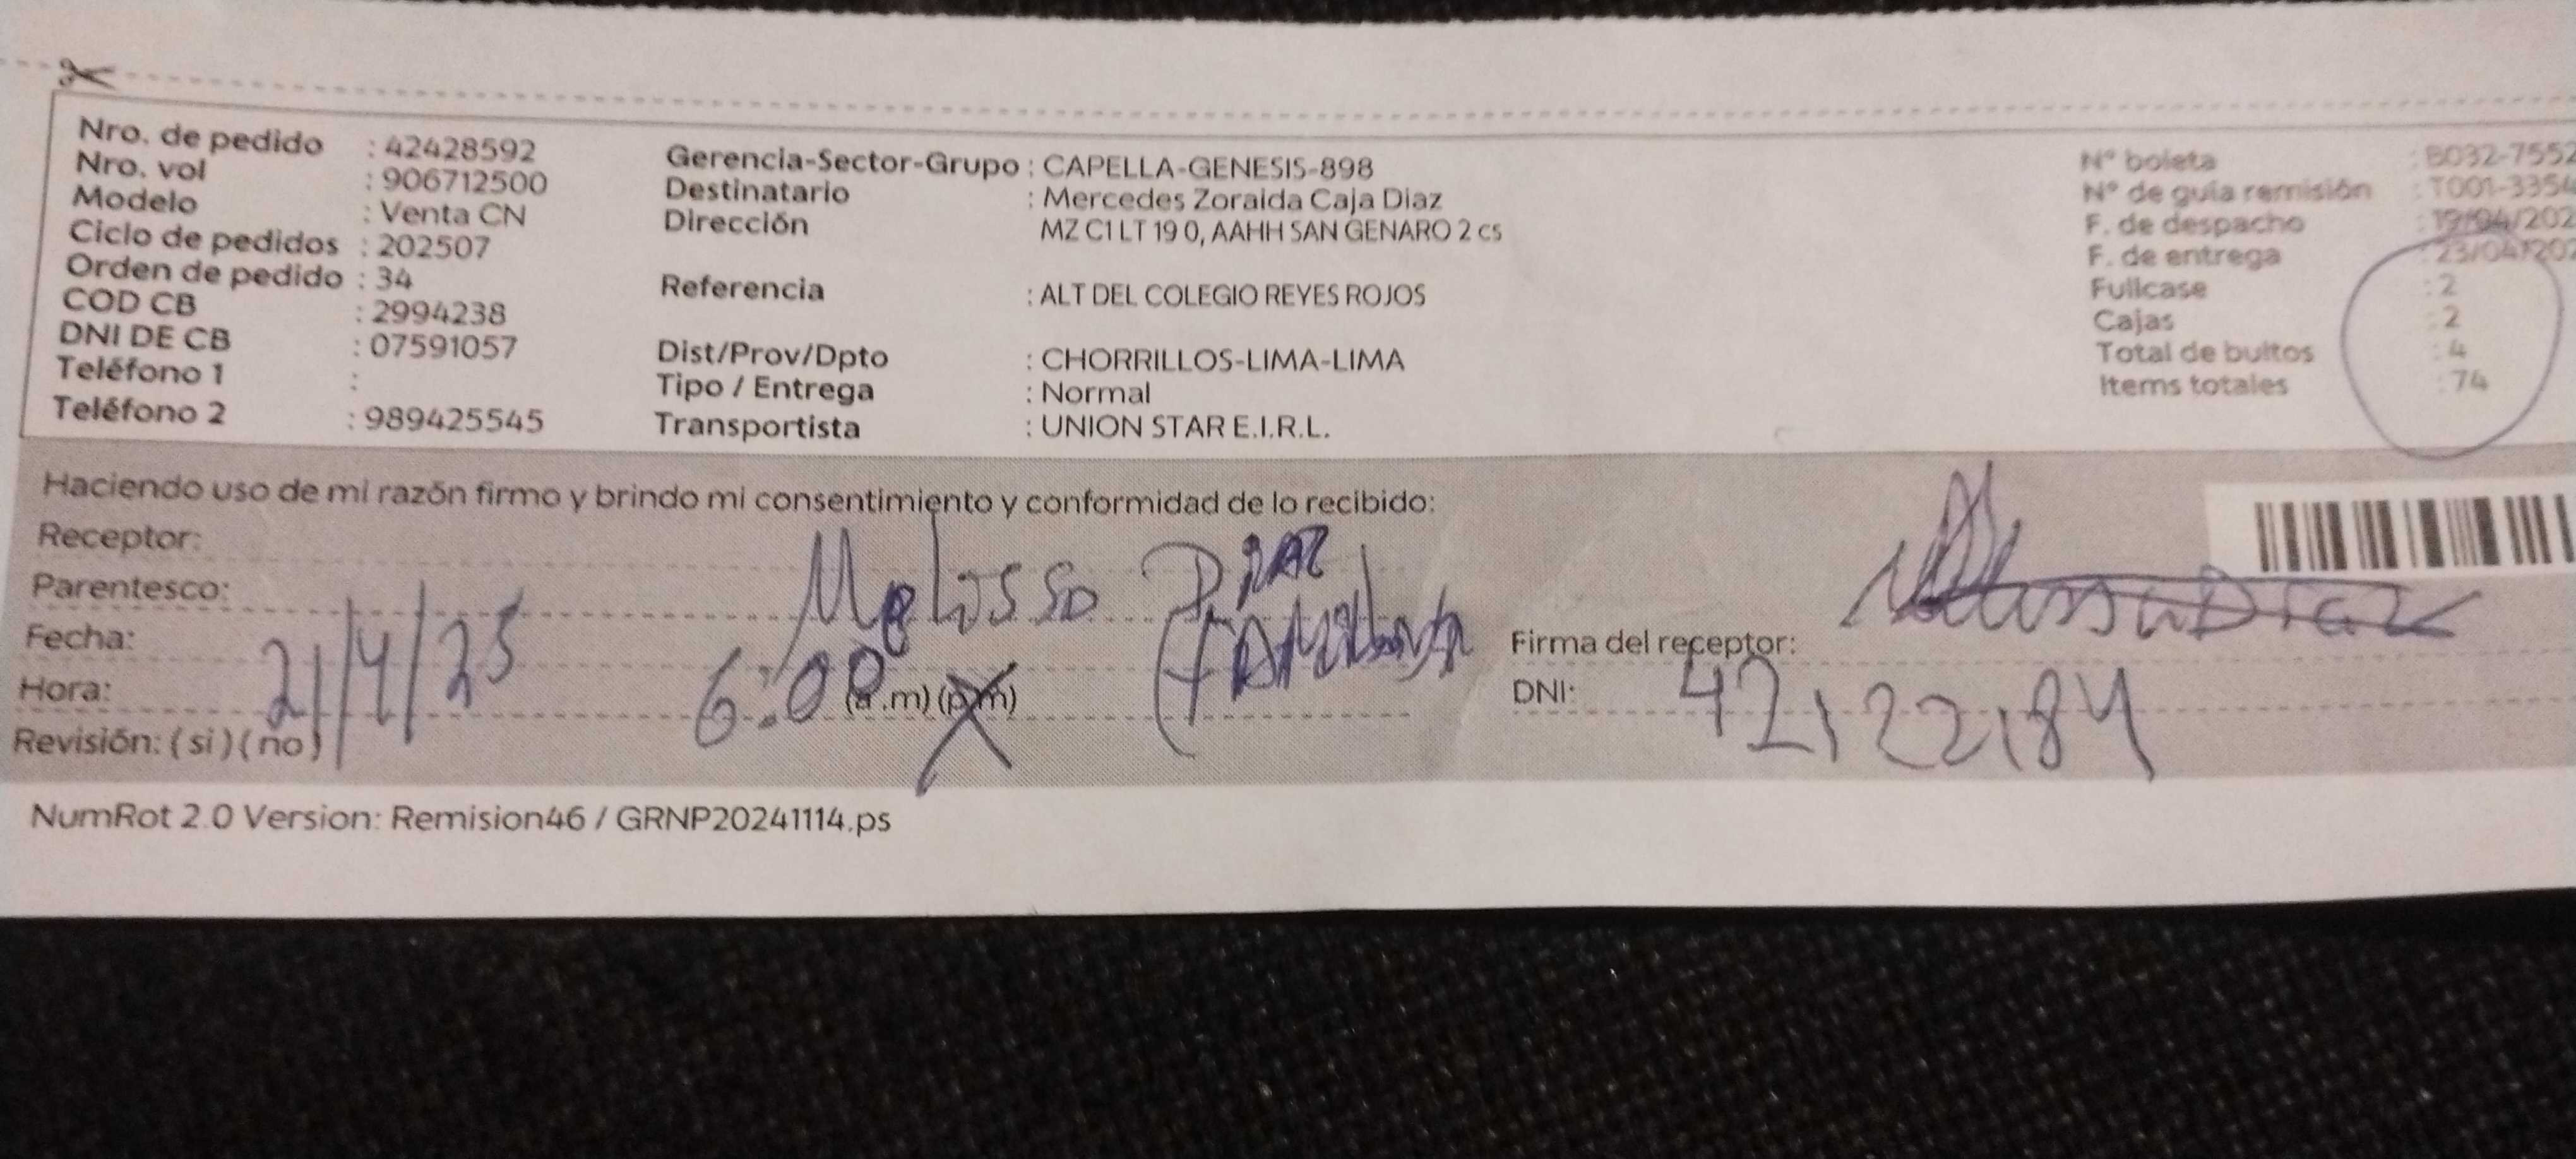 Nro. de pedido : 42428592
Nro. vol : 906712500
Modelo : Venta CN
Ciclo de pedidos : 202507
Orden de pedido : 34
COD CB : 2994238
DNI DE CB : 07591057
Teléfono 1 :
Teléfono 2 : 989425545
Gerencia-Sector-Grupo : CAPELLA-GENESIS-898
Destinatario : Mercedes Zoraida Caja Diaz
Dirección MZ C1 LT 19 0, AAHH SAN GENARO 2 cs
Referencia : ALT DEL COLEGIO REYES ROJOS
Dist/Prov/Dpto : CHORRILLOS-LIMA-LIMA
Tipo / Entrega : Normal
Transportista : UNION STAR E.I.R.L.
N° boleta : B032-7552
N° de guía remisión : T001-3354
F. de despacho : 19/04/202
F. de entrega : 23/04/202
Fullcase : 2
Cajas : 2
Total de bultos : 4
Items totales : 74
Haciendo uso de mi razón firmo y brindo mi consentimiento y conformidad de lo recibido:
Receptor: Melissa Diaz
Parentesco:
Fecha: 21/4/25
Hora: 6:00 (a.m) (p.m)
Revisión: ( si ) ( no )
Firma del receptor:
DNI: 42122184
NumRot 2.0 Version: Remision46 / GRNP20241114.ps